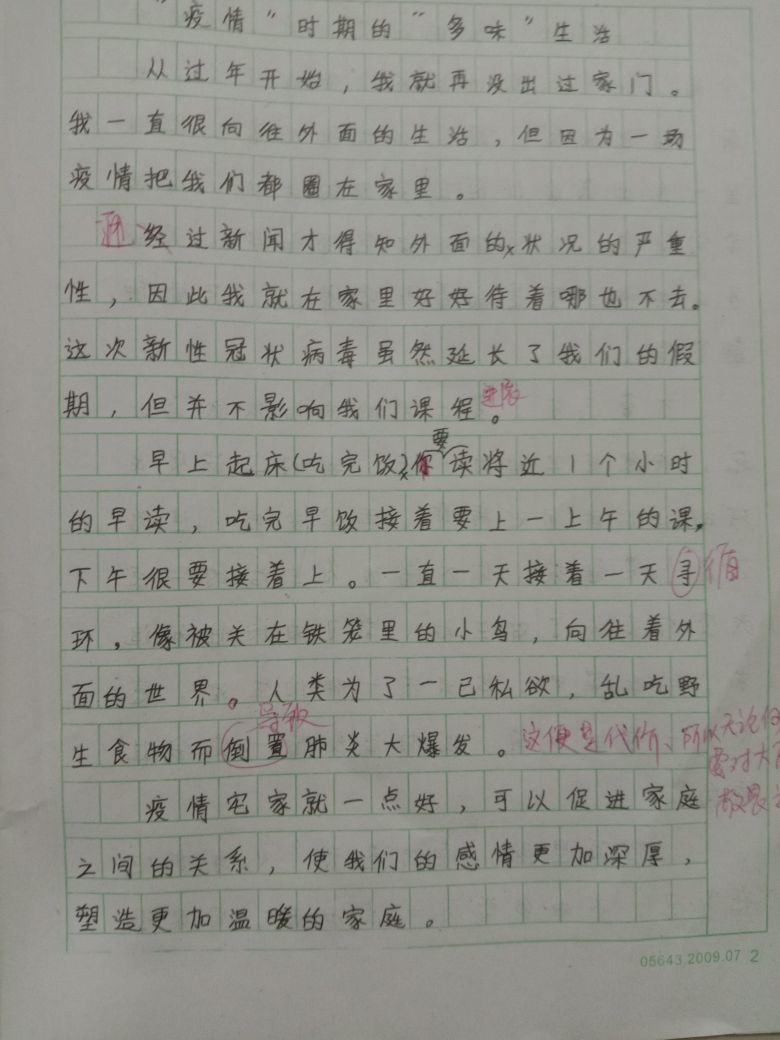 "疫情"时期的"多味"生活
从过年开始,我就再没出过家门。
我一直很向往外面的生活,但因为一场
疫情把我们都圈在家里。
通 经过新闻才得知外面的状况的严重
性,因此我就在家里好好待着哪也不去。
这次新性冠状病毒虽然延长了我们的假
期,但并不影响我们课程进度。
要
早上起床(吃完饭)你读将近1个小时
的早读,吃完早饭接着要上一上午的课,
下午很要接着上。一直一天接着一天寻 循
环,像被关在铁笼里的小鸟,向往着外
面的世界。人类为了一己私欲,乱吃野
导致
生食物而倒置肺炎大爆发。这便是代价、所以无论
要对大
敬畏
疫情宅家就一点好,可以促进家庭
之间的关系,使我们的感情更加深厚,
塑造更加温暖的家庭。
05643.2009.07 2